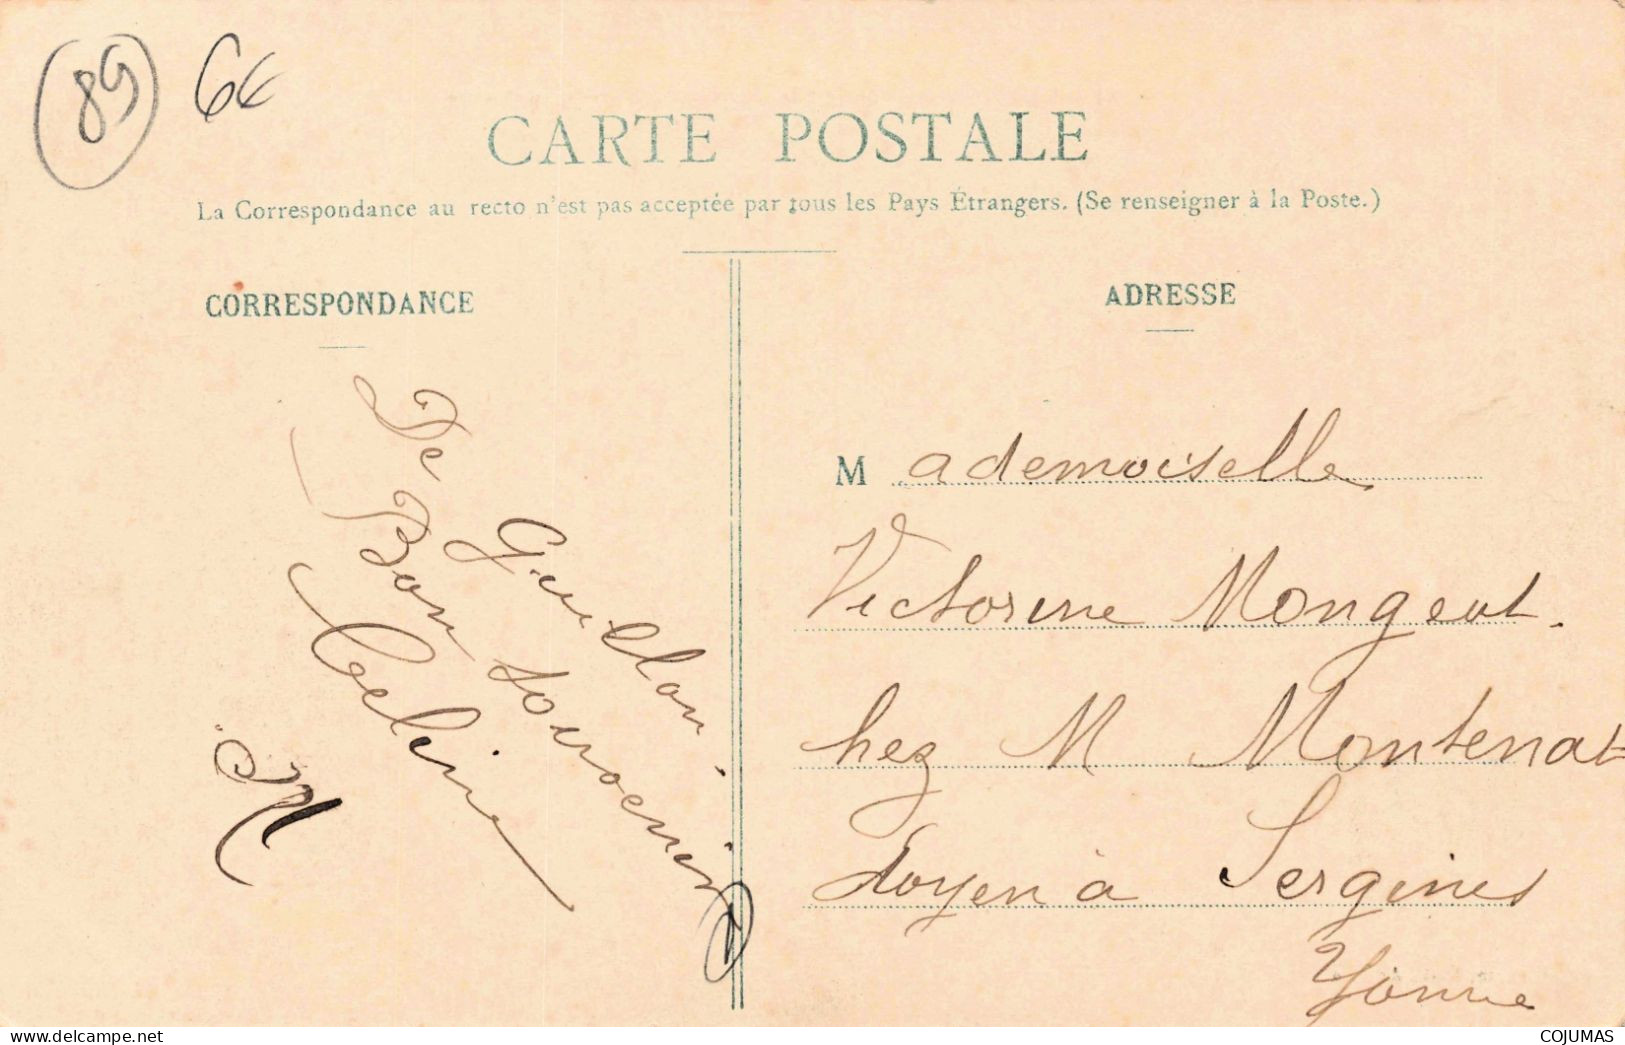 89
6€
CARTE POSTALE
La Correspondance au recto n'est pas acceptée par tous les Pays Étrangers. (Se renseigner à la Poste.)
CORRESPONDANCE
De Guillon.
Bon souvenir
Celine
M
ADRESSE
Mademoiselle
Victorine Mongeot.
chez M Montenat
doyen à Sergines
Yonne
www.delcampe.net
COJUMAS